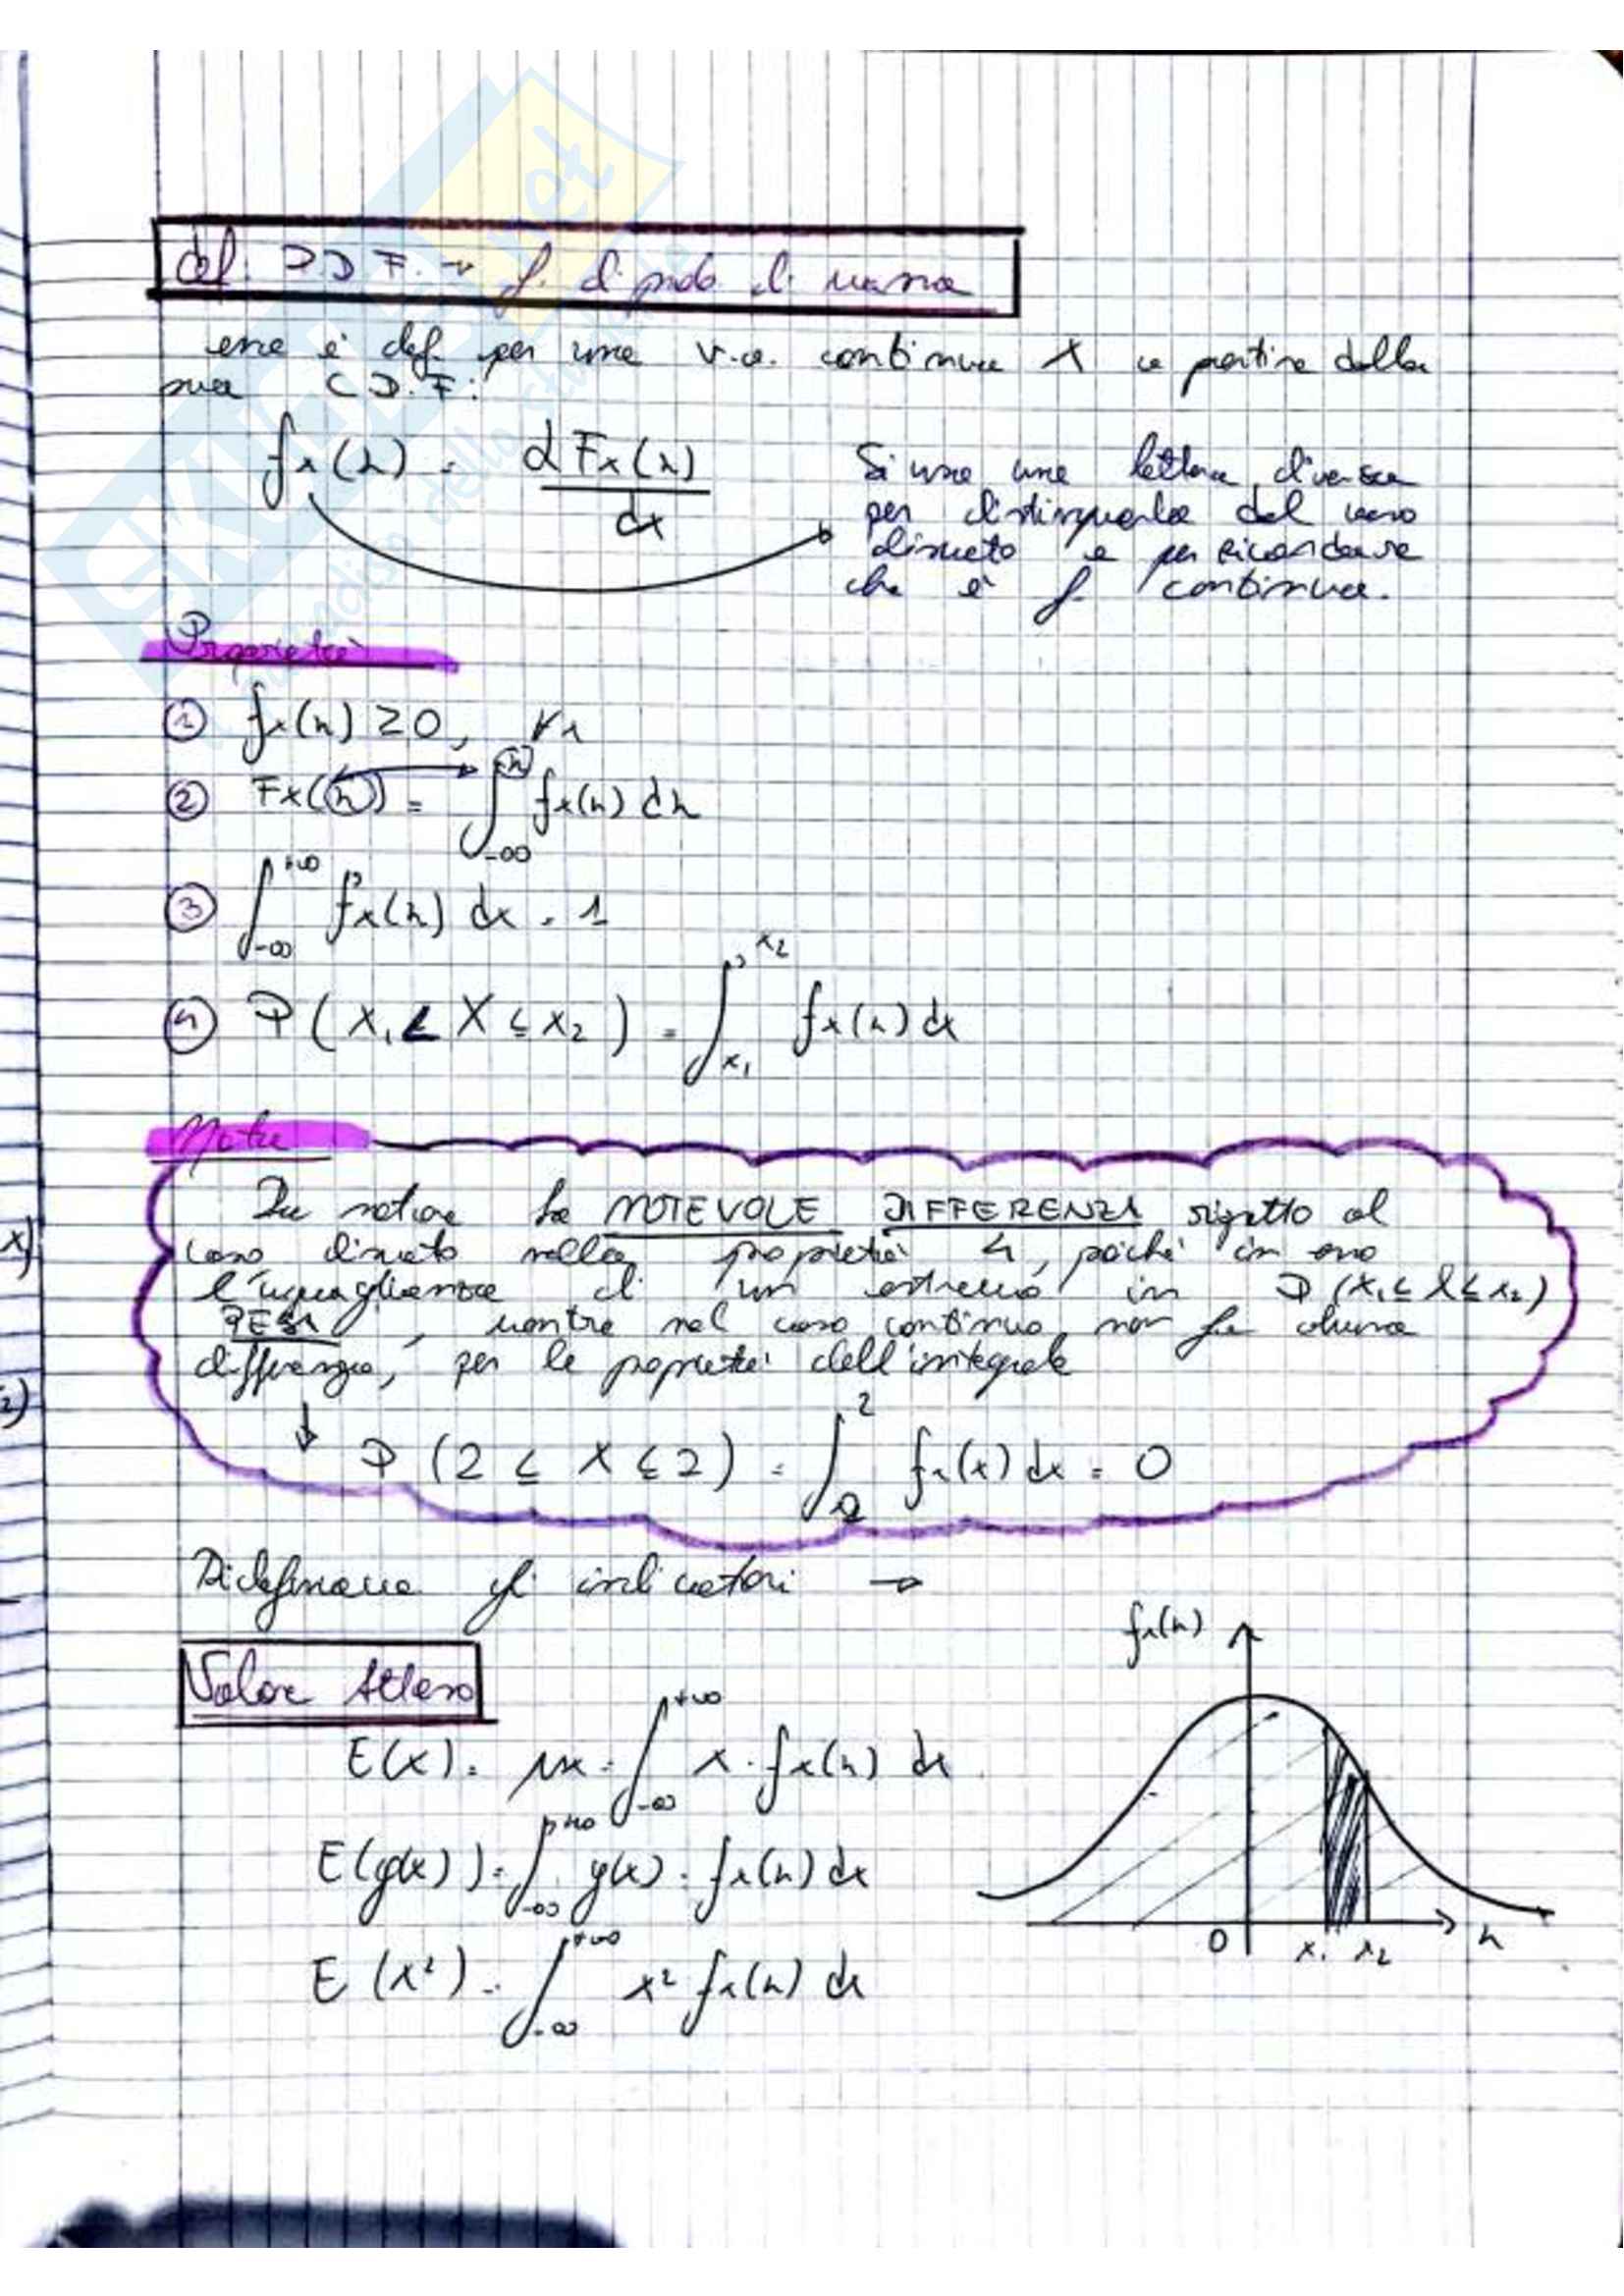 def. P.D.F. → f. di prob. di massa
essa è def. per una v.a. continua X a partire dalla
sua C.D.F.:
fx(x) = dFx(x)/dx
Si usa una lettera diversa
per distinguerla dal caso
discreto e per ricordare
che è f. continua.
Proprietà
① fx(x) ≥ 0, ∀x
② Fx(x) = ∫_{-∞}^{x} fx(x) dx
③ ∫_{-∞}^{+∞} fx(x) dx = 1
④ P(x₁ ≤ X ≤ x₂) = ∫_{x₁}^{x₂} fx(x) dx
Nota
Da notare la NOTEVOLE DIFFERENZA rispetto al
caso discreto nella proprietà 4, poiché in esso
l'uguaglianza di un estremo in P(x₁ ≤ X ≤ x₂)
PESA, mentre nel caso continuo non fa alcuna
differenza, per le proprietà dell'integrale
↓ P(2 ≤ X ≤ 2) = ∫_{2}^{2} fx(x) dx = 0
Ridefiniamo gli indicatori →
Valore Atteso
E(x) = μx = ∫_{-∞}^{+∞} x · fx(x) dx
E(g(x)) = ∫_{-∞}^{+∞} g(x) · fx(x) dx
E(x²) = ∫_{-∞}^{+∞} x² fx(x) dx
fx(x)
0 x₁ x₂ x
SKUOLA.net